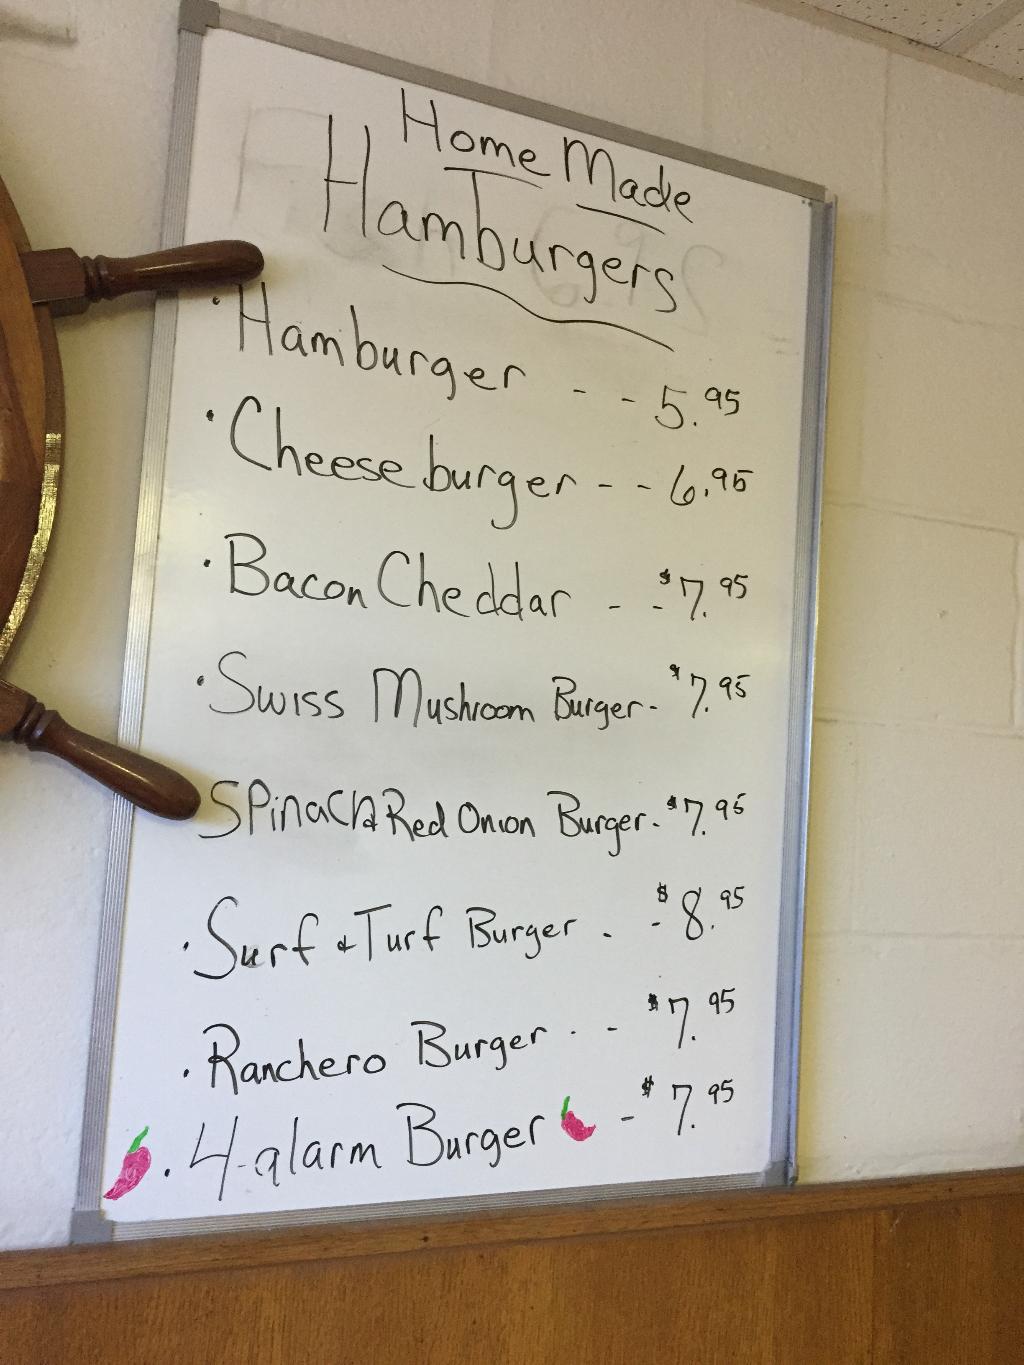 Home Made
Hamburgers
· Hamburger - - 5.95
· Cheeseburger - - 6.95
· Bacon Cheddar - - $7.95
· Swiss Mushroom Burger - $7.95
Spinach & Red Onion Burger - $7.95
· Surf & Turf Burger - - $8.95
· Ranchero Burger - - $7.95
· 4-alarm Burger - $7.95